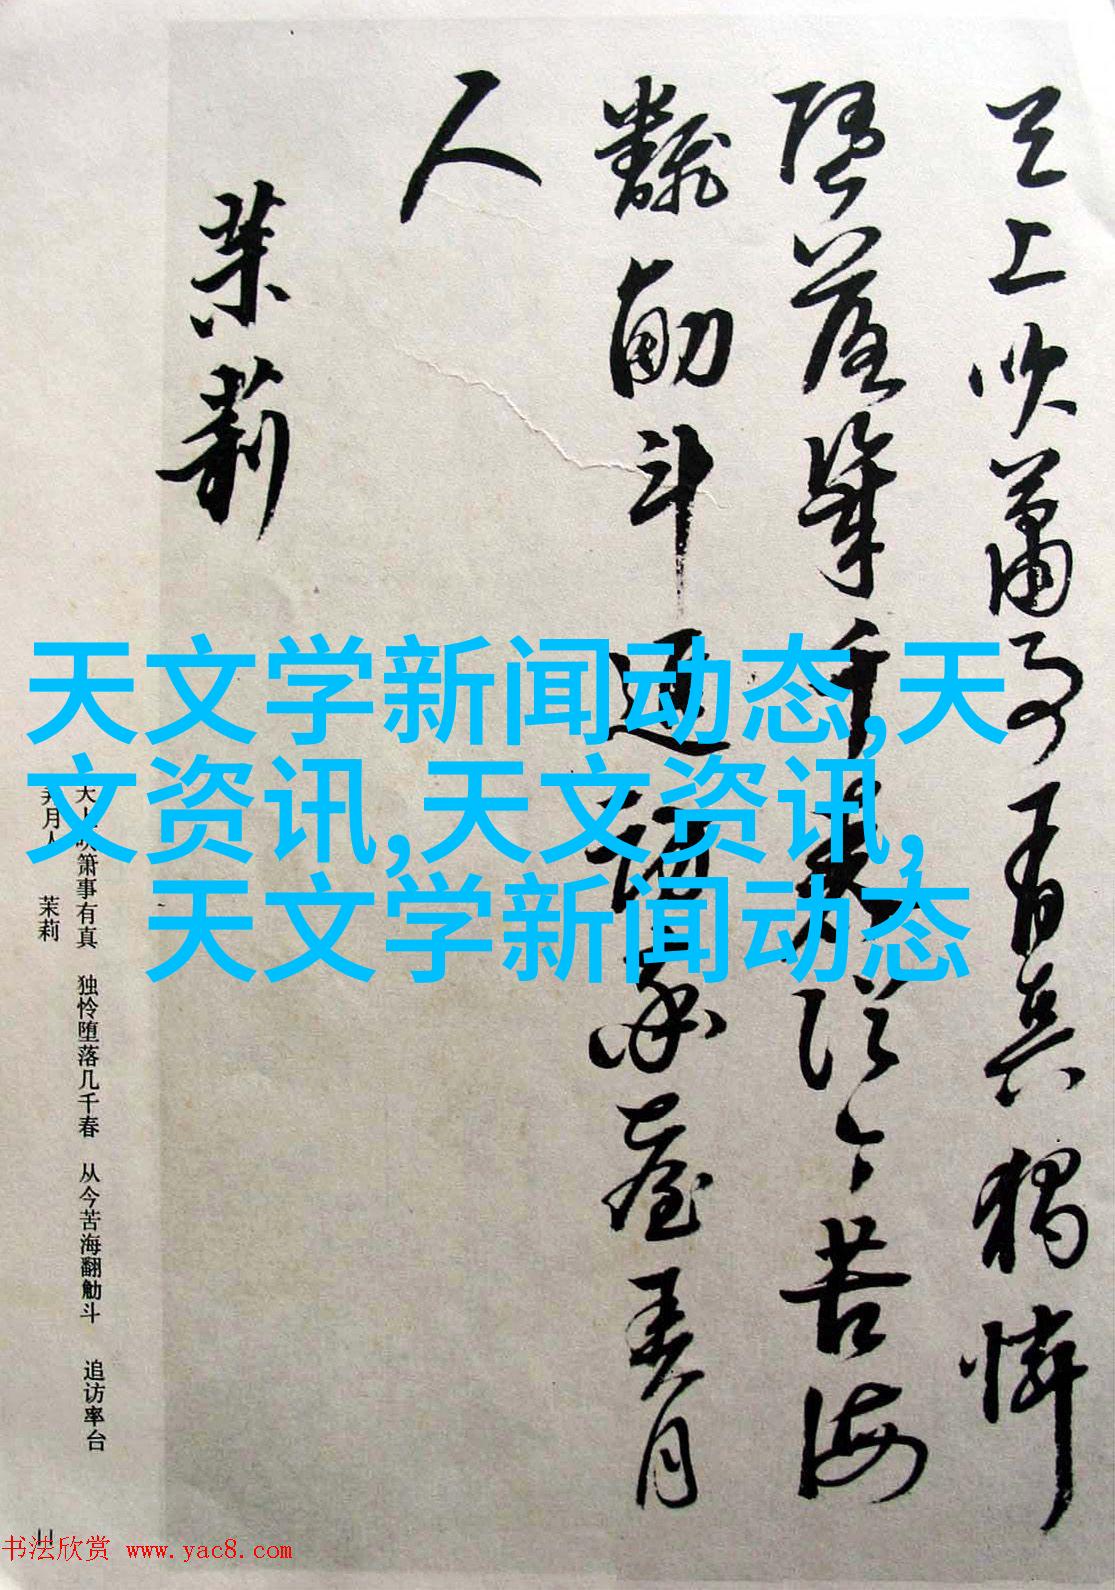 天上吹箫事有真独怜
堕落几千春从今苦海
翻觔斗追访率台弄月
人
茉莉
天文学新闻动态,天
文资讯,天文资讯,
天文学新闻动态
天上吹箫事有真 独怜堕落几千春 从今苦海翻觔斗 追访率台
弄月人 茉莉
11
书法欣赏 www.yac8.com